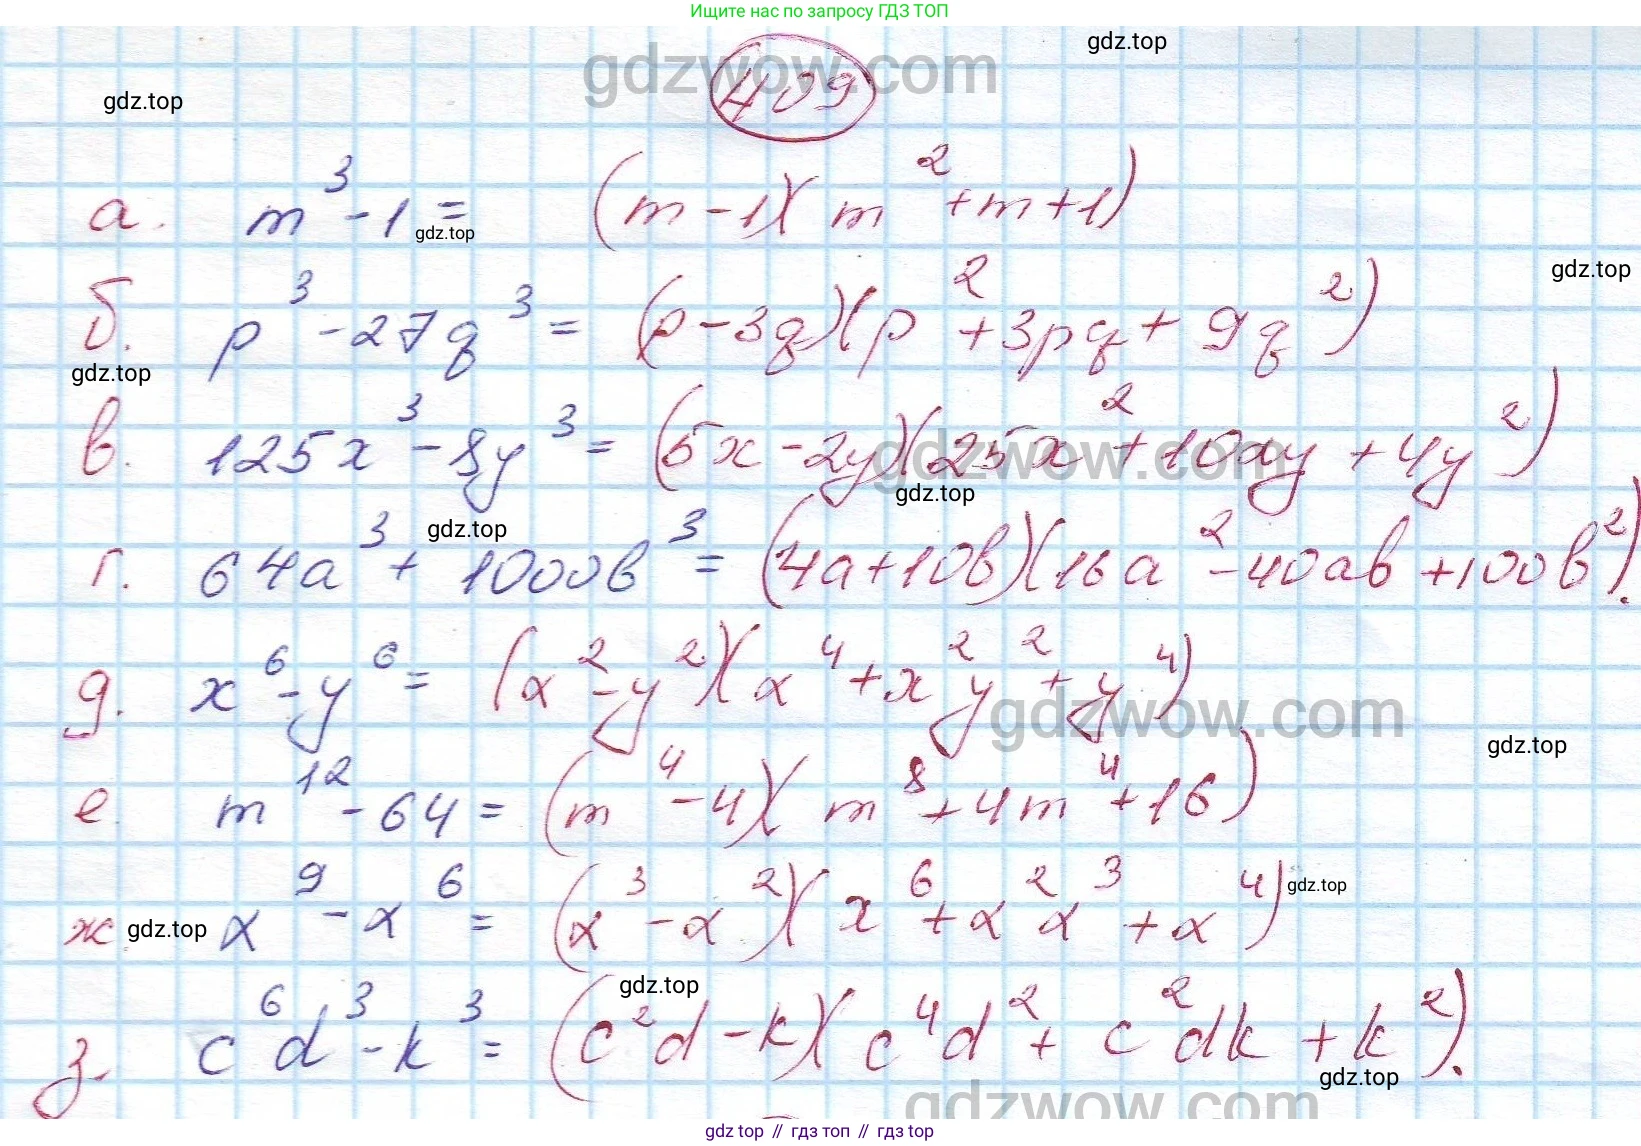 Ищите нас по запросу ГДЗ ТОП
gdzwow.com
gdz.top
gdz.top
409
а. m³ - 1 = (m - 1)(m² + m + 1)
gdz.top
gdz.top
б. p³ - 27q³ = (p - 3q)(p² + 3pq + 9q²)
gdz.top
в. 125x³ - 8y³ = (5x - 2y)(25x² + 10xy + 4y²)
gdzwow.com
gdz.top
gdz.top
г. 64a³ + 1000b³ = (4a + 10b)(16a² - 40ab + 100b²).
д. x⁶ - y⁶ = (x² - y²)(x⁴ + x²y² + y⁴)
gdzwow.com
gdz.top
е. m¹² - 64 = (m⁴ - 4)(m⁸ + 4m⁴ + 16)
gdz.top
ж x⁹ - x⁶ = (x³ - x²)(x⁶ + x²x³ + x⁴)
gdz.top
gdz.top
з. c⁶d³ - k³ = (c²d - k)(c⁴d² + c²dk + k²).
gdz.top
gdzwow.com
gdz.top // гдз топ // гдз top